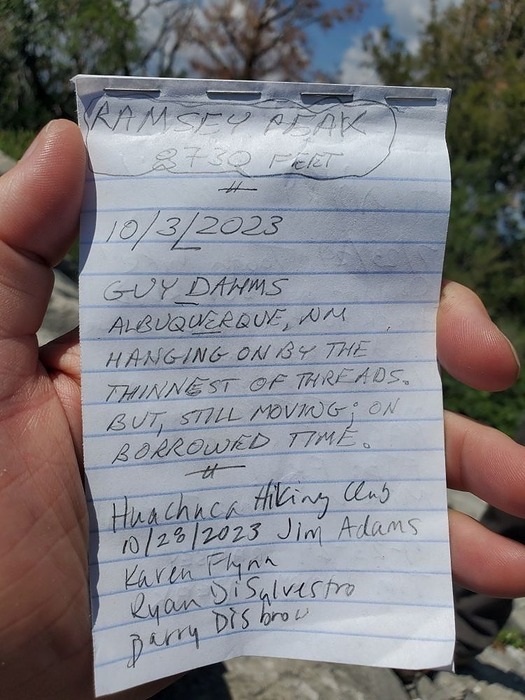 RAMSEY PEAK
8730 FEET
10/3/2023
GUY DAHMS
ALBUQUERQUE, NM
HANGING ON BY THE
THINNEST OF THREADS.
BUT, STILL MOVING; ON
BORROWED TIME.
Huachuca Hiking Club
10/28/2023 Jim Adams
Karen Flynn
Ryan DiSylvestro
Barry Disbrow